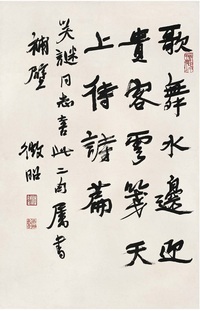 歌舞水邊迎
貴客雲箋天
上待詩篇
笑謎同志喜此二句屬書
補壁
微昭